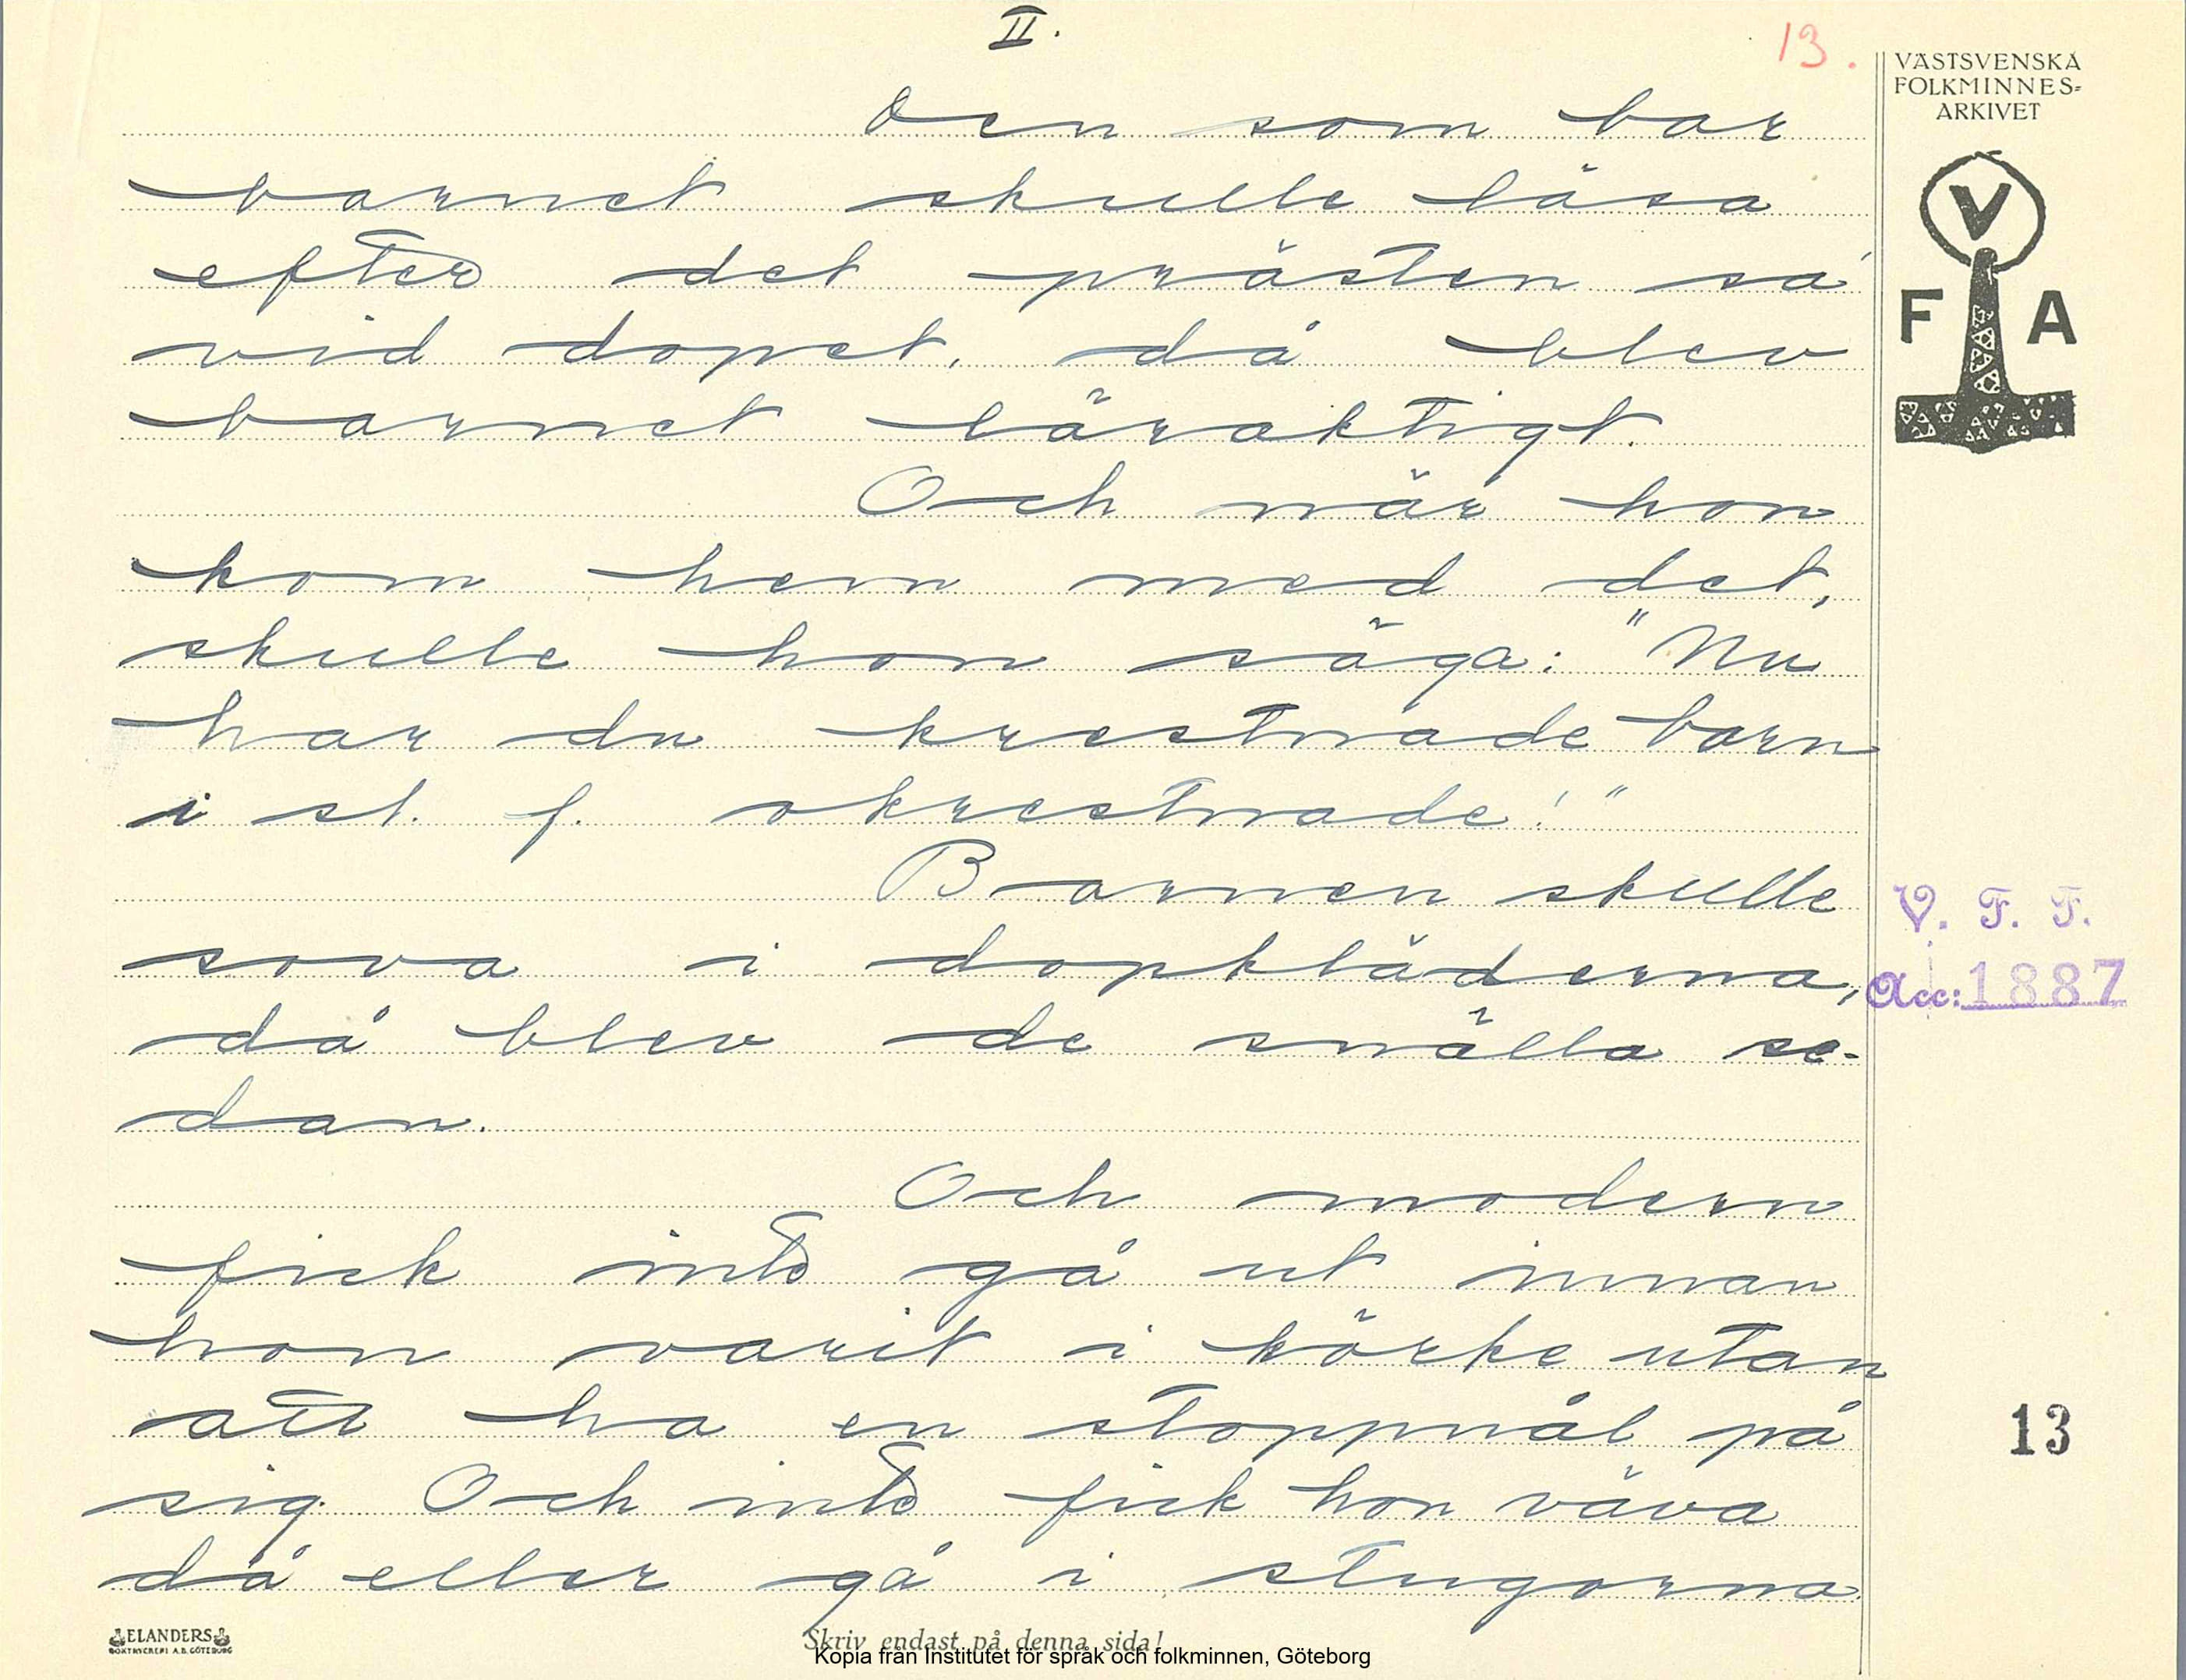 II.
13.
VÄSTSVENSKA
FOLKMINNES-
ARKIVET
V
F A
Den som bar
barnet skulle läsa
efter det prästen sa'
vid dopet, då blev
barnet läraktigt.
Och när hon
kom hem med det,
skulle hon säga: "Nu
har du krestnade barn
i st. f. okrestnade!"
Barnen skulle
sova i dopkläderna,
då blev de snälla se-
dan.
V. F. F.
Acc: 1887
Och modern
fick inte gå ut innan
hon varit i körke utan
att ha en stoppnål på
sig. Och inte fick hon väva
då eller gå i stugorna.
13
ELANDERS
BOKTRYCKERI A.B. GÖTEBORG
Skriv endast på denna sida!
Kopia från Institutet för språk och folkminnen, Göteborg